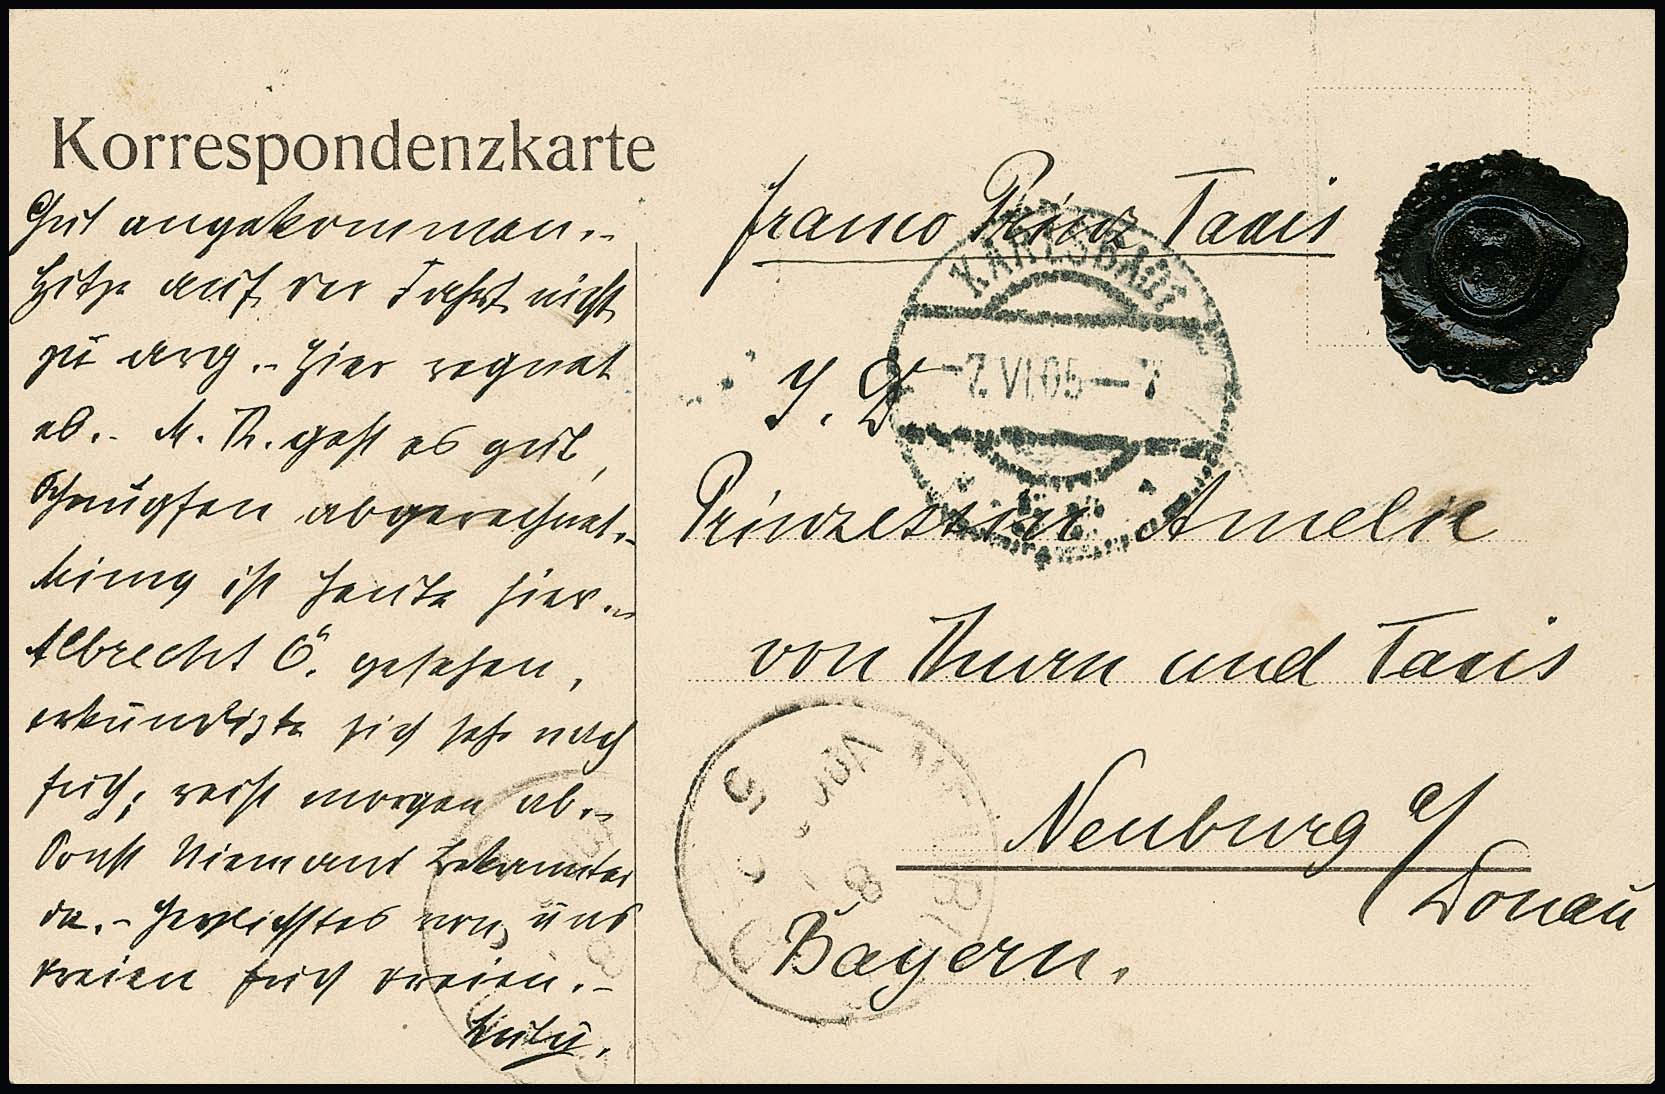 Korrespondenzkarte
Gut angekommen.-
Hitze auf der Fahrt nicht
zu arg.- Hier regnet
es.- M. R. geht es gut,
Schnupfen abgerechnet.-
ist heute hier.-
Albrecht Ö. gesehen,
erkundigte sich sehr nach
Euch; reist morgen ab.-
Sonst Niemand Bekannter
da.- Herzlichstes von uns
dreien Euch dreien.-
franco Prinz Taxis
KARLSBAD
-7. VI. 05-7
I. D.
Prinzessin Amelie
von Thurn und Taxis
Neuburg a/
Donau
Bayern.